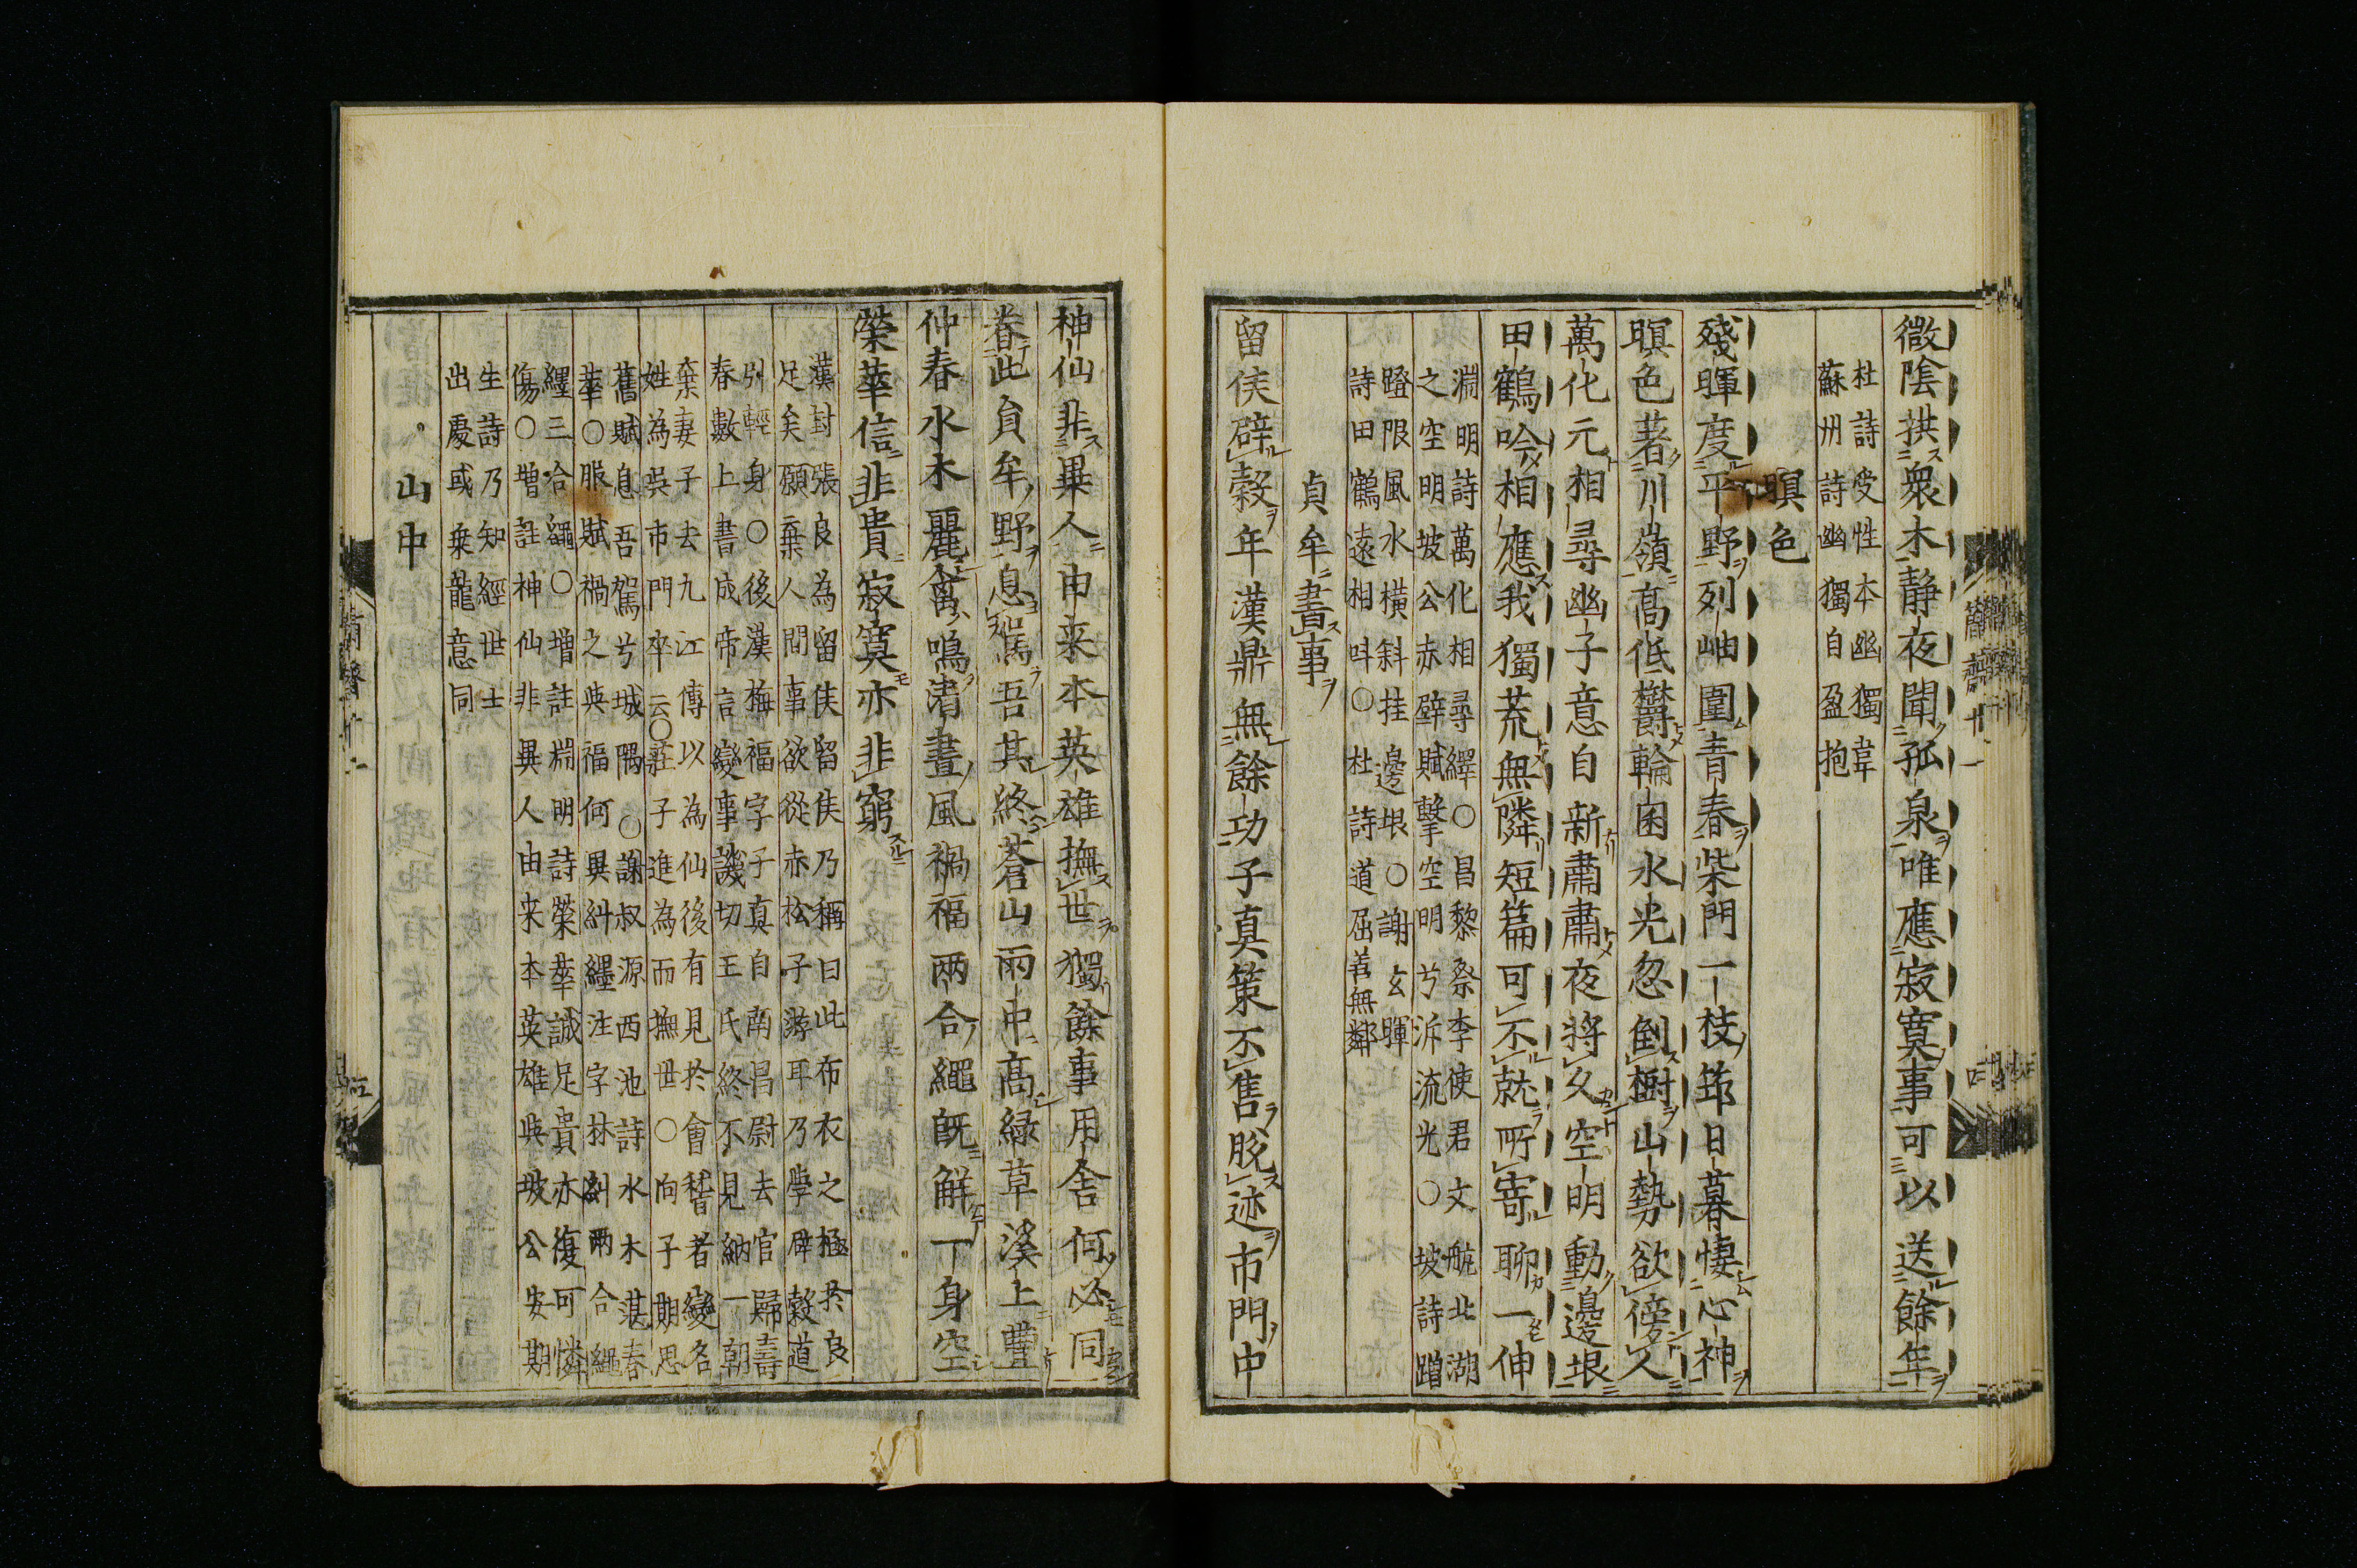 微陰拱衆木静夜聞孤泉唯應寂寞事可以送餘年
杜詩受性本幽獨韋
蘇州詩幽獨自盈抱
暝色
殘暉度平野列岫圍青春柴門一枝筇日暮悽心神
暝色著川嶺高低欝輪囷水光忽倒樹山勢欲傍人
萬化元相尋幽子意自新肅肅夜將久空明動邊垠
田鶴吟相應我獨荒無隣短篇可不就所寄聊一伸
淵明詩萬化相尋繹○昌黎祭李使君文艤北湖
之空明坡公赤壁賦擊空明兮泝流光○坡詩蹭
蹬限風水橫斜挂邊垠○謝玄暉
詩田鶴遠相叫○杜詩道屈善無鄰
貞牟書事
留侯辟穀年漢鼎無餘功子真策不售脫迹市門中
神仙非異人由来本英雄撫世獨餘事用舍何必同
眷此貞牟野息駕吾其終蒼山雨中高緑草溪上豐
仲春水木麗禽鳴清晝風禍福兩合繩既解一身空
榮華信非貴寂寞亦非窮
漢封張良為留侯留侯乃稱曰此布衣之極於良
足矣願棄人間事欲從赤松子游耳乃學辟穀道
引輕身○後漢梅福字子真自南昌尉去官歸壽
春數上書成帝言變事譏切王氏終不見納一朝
棄妻子去九江傳以為仙後有見於會稽者變名
姓為吳市門卒云○莊子進為而撫世○向子期思
舊賦息吾駕兮城隅○謝叔源西池詩水木湛春
華○服賦禍之與福何異糾纆注字林糾兩合繩
纆三合繩○增註淵明詩榮華誠足貴亦復可憐
傷○增註神仙非異人由来本英雄與坡公安期
生詩乃知經世士
出處或乗龍意同
山中